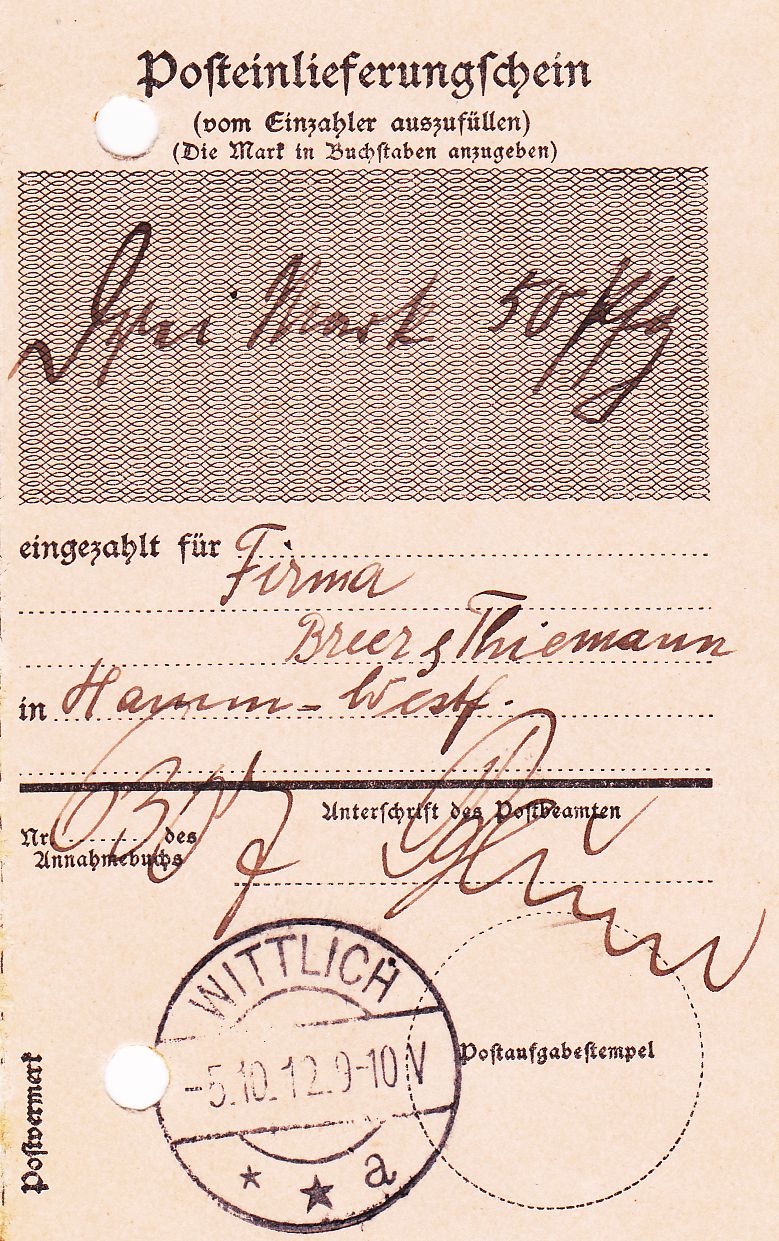 Posteinlieferungschein
(vom Einzahler auszufüllen)
(Die Mark in Buchstaben anzugeben)
Drei Mark 50 Pfg
eingezahlt für Firma
Breer & Thiemann
in Hamm-Westf.
Unterschrift des Postbeamten
Nr. des
Annahmebuchs
WITTLICH
-5.10.12.9-10V
* * a
Postaufgabestempel
Postvermerk